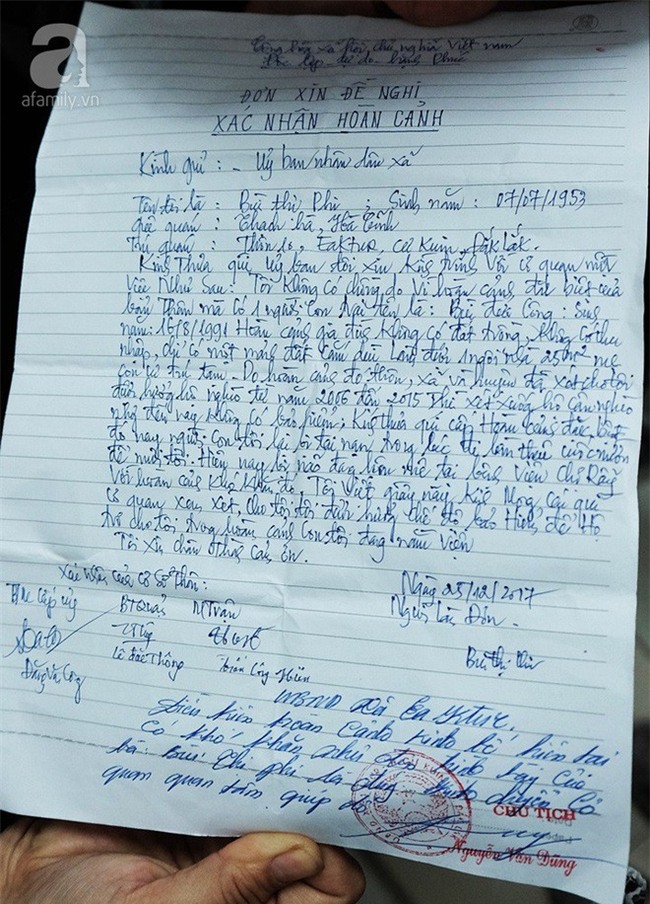 a
afamily.vn
Cộng hòa xã hội chủ nghĩa Việt nam
Độc lập - tự do - hạnh Phúc
ĐƠN XIN ĐỀ NGHỊ
XÁC NHÂN HOÀN CẢNH
Kính gửi : - Uỷ ban nhân dân xã
Tên tôi là : Bùi thị Phi ; Sinh năm : 07/07/1953
quê quán : Thạch hà, Hà Tĩnh
Trú quán : Thôn 16, Eaktua, cư Kuin, Đắk Lắk.
Kính Thưa quí uỷ ban tôi xin Kính trình với cơ quan một
việc Như Sau : Tôi Không có chồng do hoàn cảnh đặc biệt của
bản Thân mà có 1 người con trai tên là : Bùi đức Công : Sinh
năm : 16/8/1991 Hoàn cảnh gia đình không có đất trồng, Không có thu
nhập, chỉ có một mảng đất cắm dùi 1 ngôi nhà 25m2 mẹ
con. Do hoàn cảnh đó thôn, xã và huyện đã xét cho tôi
được hưởng hộ nghèo từ năm 2006 đến 2015 Thì xét xuống hộ cận nghèo
nay không có bảo hiểm; Kính thưa quí cấp Hoàn cảnh đặc biệt
do nay người con tôi lại bị tai nạn trong lúc đi làm thuê
để nuôi tôi. Hiện nay đang hôn mê tại bệnh Viện Chợ Rẫy
Với hoàn cảnh khó khăn đó Tôi Viết giấy này Kính Mong quí
cơ quan xem xét cho tôi được hưởng chế độ bảo Hiểm để Hỗ
trợ cho tôi trong hoàn cảnh con tôi đang nằm viện
Tôi xin chân thành cảm ơn.
Xác nhận của cơ sở thôn :
Ngày 25/12/2017
Người làm Đơn.
Cấp uỷ
MTrận
Lê đắc Thông
Trần Công Hiền
Đặng Văn Công
Bùi thị Phi
UBND xã Ea Ktur.
điều kiện hoàn cảnh kinh tế hiện tại
Có khó khăn như đơn trình bày của
bà: Bùi Thị Phi là đúng
quan quan tâm giúp đỡ
CHỦ TỊCH
Nguyễn Văn Dũng